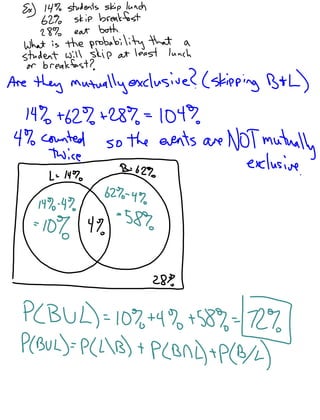 Ex) 14% students skip lunch
62% skip breakfast
28% eat both
What is the probability that a
student will skip at least lunch
or breakfast?
Are they mutually exclusive? (skipping B+L)
14% + 62% + 28% = 104%
4% counted twice so the events are NOT mutually exclusive.
L = 14% B = 62%
14% - 4% = 10%
4%
62% - 4% = 58%
28%
P(B∪L) = 10% + 4% + 58% = 72%
P(B∪L) = P(L\B) + P(B∩L) + P(B/L)